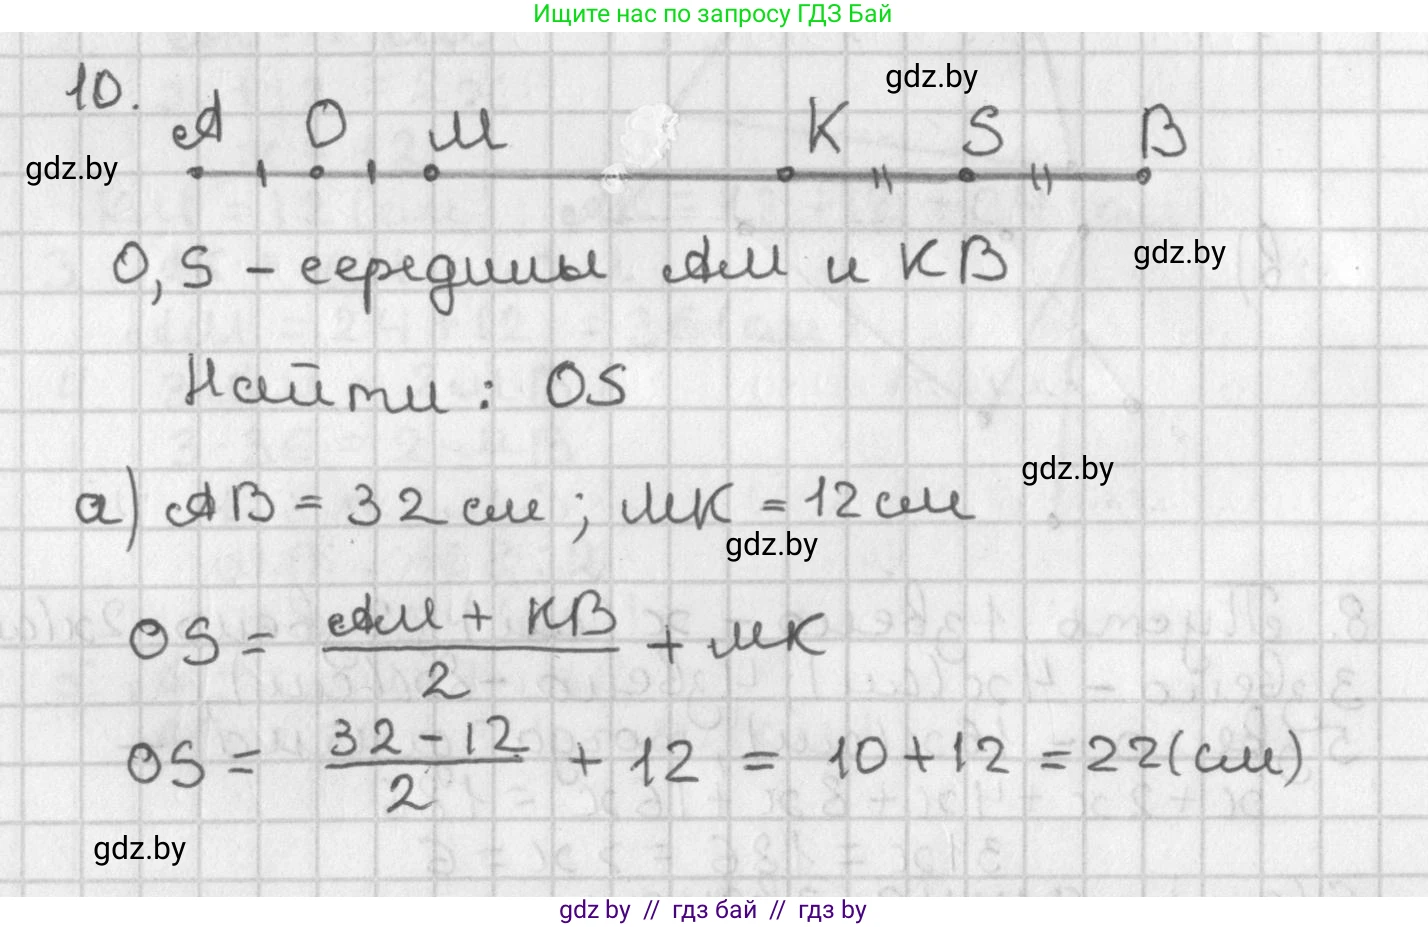 Ищите нас по запросу ГДЗ Бай
gdz.by
10.
A O M K S B
gdz.by
O, S - середины AM и KB
gdz.by
Найти: OS
gdz.by
а) AB = 32 см; MK = 12 см
gdz.by
OS = (AM + KB)/2 + MK
OS = (32 - 12)/2 + 12 = 10 + 12 = 22 (см)
gdz.by
gdz.by // гдз бай // гдз by